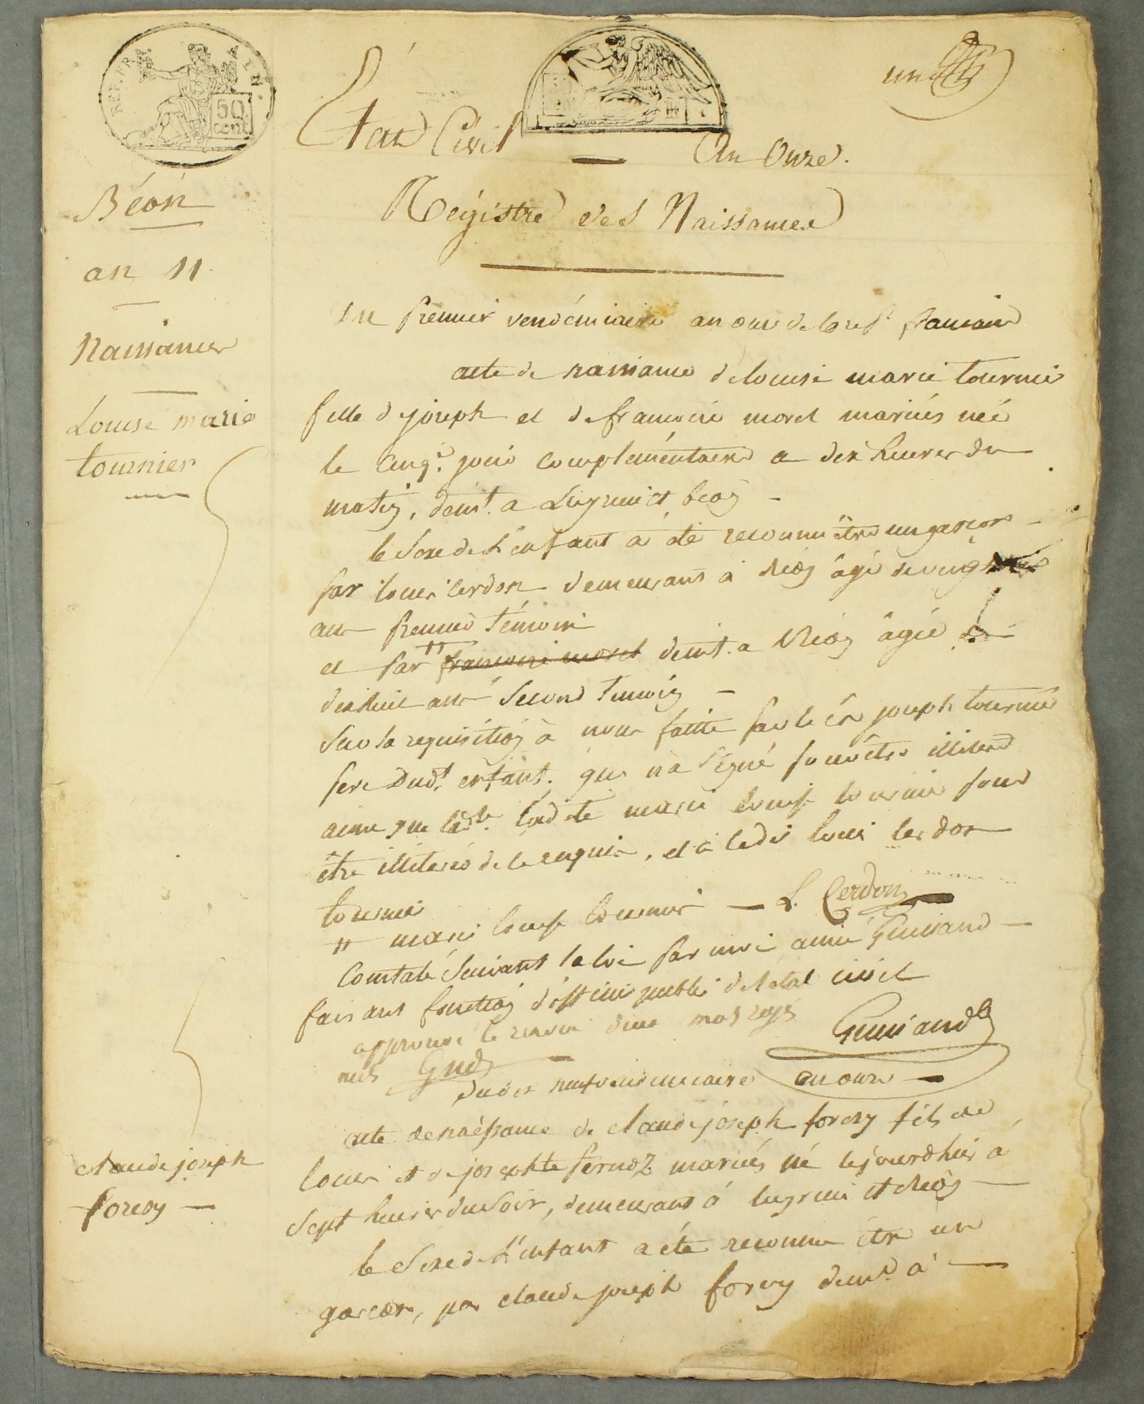 REP. FRA.
50 cent
un
État Civil — An Onze.
Régistre des Naissances
Béon
an 11
Naissances
Louise marie
tournier
Du premier vendémiaire an onze de la rep. français
acte de naissance de louise marie tournier
fille de joseph et de françoise morel mariés née
le cinq.e jour complémentaire a dix heures du
matin, demt. a Luyrieu et béon —
le Sexe de l'enfant à été reconnu être un garçon —
par louis cerdon demeurant à Béon âgé de vingt
ans premier témoin
et par " françoise morel demt. a Béon âgée de
dix huit ans Second temoin —
Sur la requisition à nous faitte par le cen joseph tournier
pere dudt. enfant. qui n'a Signé pour être illiteré
ainsi que marie louise tournier pour
être illiteré de ce enquis, et à ledit louis cerdon
tournier
" marie louise tournier — L. Cerdon
Constaté Suivant la loi par moi aimé Guinand —
faisant fonction d'officier public de l'etat civil
approuvé le renvoi d'une mots rayés
nuls Gnd — Guinand
Dudit neuf vendemiaire an onze —
claude joseph
forery —
acte de naissance de claude joseph forery fils de
louis et de josephte fernoz mariés né cejourdhui à
Sept heures du Soir, demeurant à luyrieu et Béon —
le Sexe de l'enfant a été reconnu être un
garcon, par claude joseph forery demt. à —